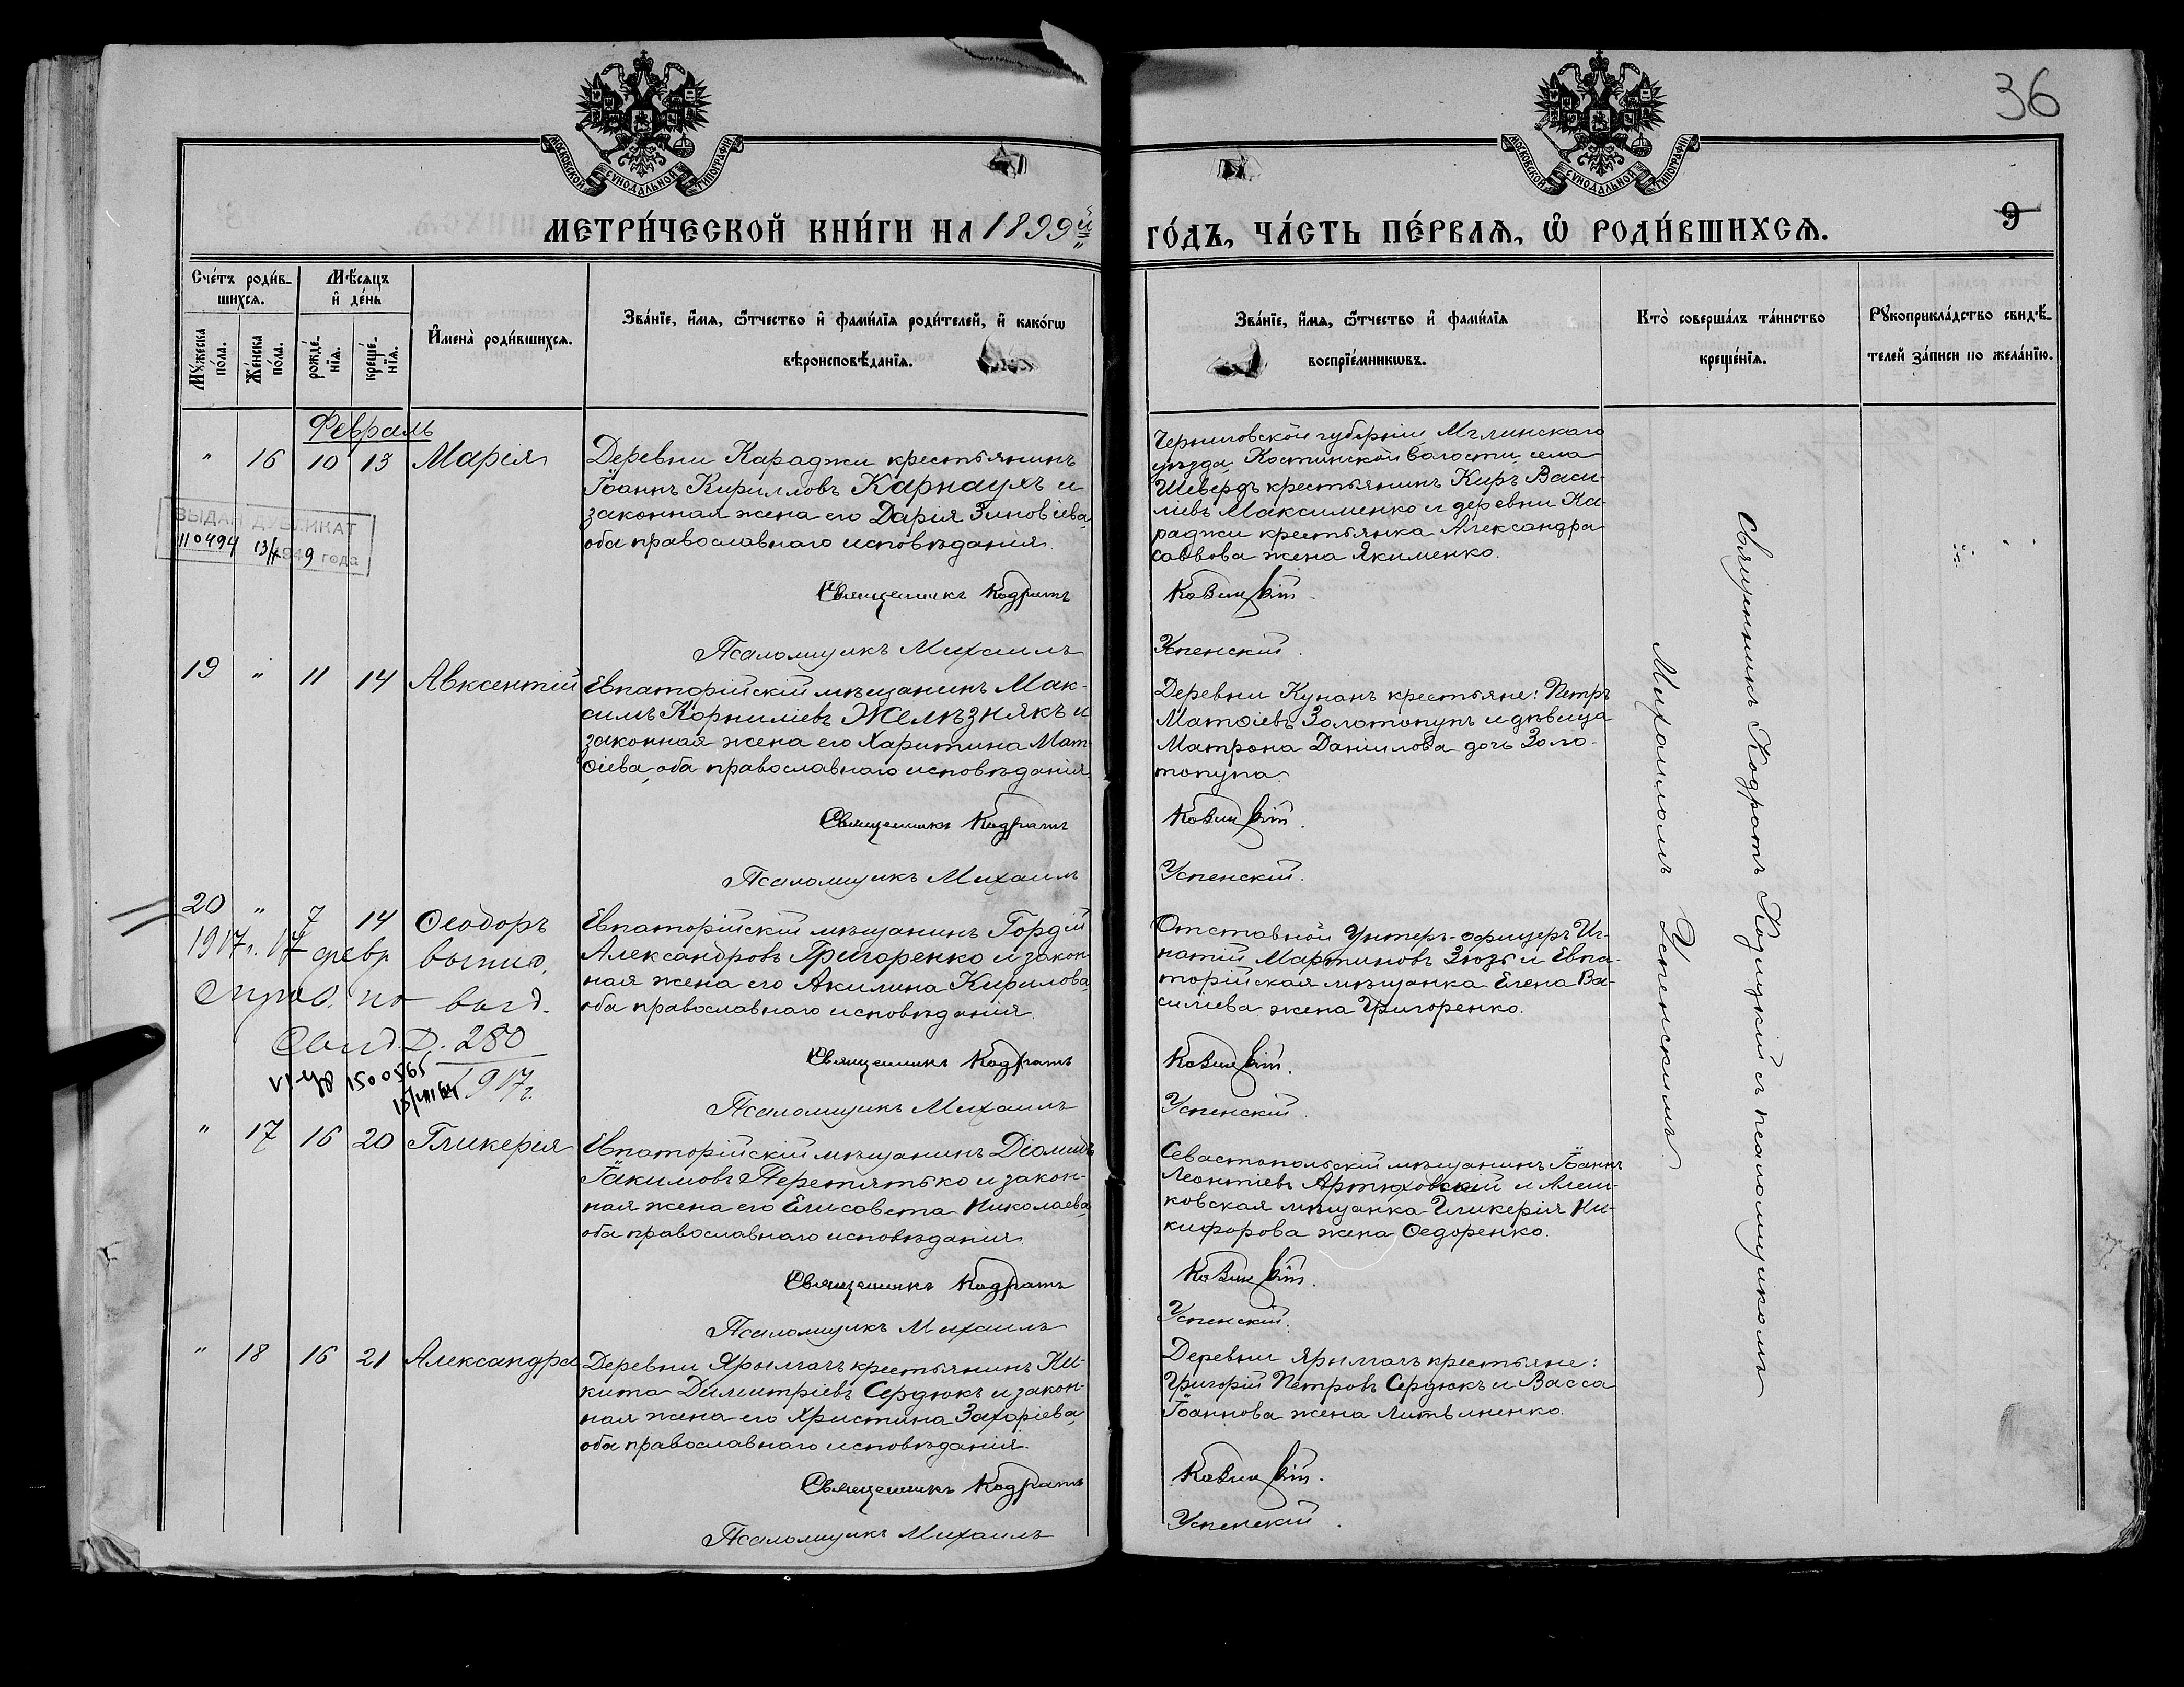 36
МОСКОВСКОЙ СУНОДАЛЬНОЙ ТИПОГРАФІИ.
МОСКОВСКОЙ СУНОДАЛЬНОЙ ТИПОГРАФІИ.
МЕТРИ́ЧЕСКОЙ КНИ́ГИ НА 1899й
ГО́ДЪ, ЧА́СТЬ ПЕ́РВАѦ, Ѡ РОДИ́ВШИХСѦ.
9
Сче́тъ роди́в-
шихсѧ.
Мѣ́сяцъ
и҆ де́нь
Мꙋ́жеска
по́ла.
Же́нска
по́ла.
рожде́-
нїѧ.
креще́-
нїѧ.
И҆мена̀ роди́вшихсѧ.
Зва́нїе, и҆́мѧ, ѻ҆́тчество и҆ фами́лїѧ роди́телей, и҆ како́гѡ
вѣроисповѣ́данїѧ.
Зва́нїе, и҆́мѧ, ѻ҆́тчество и҆ фами́лїѧ
воспрїе́мникѡвъ.
Кто̀ соверша́лъ та́инство
креще́нїѧ.
Рꙋкоприкла́дство свидѣ́-
телей за́писи по жела́нїю.
Февраль
" 16 10 13 Марія
Деревни Караджи крестьянинъ
Іоаннъ Кирилловъ Карнаухъ и
законная жена его Дарія Зиновіева,
оба православнаго исповѣданія.
Священникъ Кодратъ
Псаломщикъ Михаилъ
Черниговской губерніи, Мглинскаго
уѣзда, Костинской волости, села
Шевердъ крестьянинъ Киръ Васи-
ліевъ Максименко и деревни Ка-
раджи крестьянка Александра
Саввова жена Якименко.
Успенскій.
ВЫДАН ДУБЛИКАТ
110494 13/ 1949 года
19 " 11 14 Авксентій
Евпаторійскій мѣщанинъ Мак-
симъ Корниліевъ Желѣзнякъ и
законная жена его Харитина Мат-
ѳіева, оба православнаго исповѣданія.
Священникъ Кодратъ
Псаломщикъ Михаилъ
Деревни Кунанъ крестьяне: Петръ
Матѳіевъ Золотопупъ и дѣвица
Матрона Даніилова дочь Золо-
топупа.
Успенскій.
20 " 7 14 Ѳеодоръ
1917г. 17 февр. выпис.
Св.Д. 280
1917г.
1500565
15/VIII 64
Евпаторійскій мѣщанинъ Гордій
Александровъ Григоренко и закон-
ная жена его Акилина Кирилова,
оба православнаго исповѣданія.
Священникъ Кодратъ
Псаломщикъ Михаилъ
Отставной Унтеръ-офицеръ Иг-
натій Мартиновъ Зюзь и Евпа-
торійская мѣщанка Елена Ва-
силіева жена Григоренко.
Успенскій.
" 17 16 20 Гликерія
Евпаторійскій мѣщанинъ Діомидъ
Іакимовъ Перетятько и закон-
ная жена его Елисавета Николаева,
оба православнаго исповѣданія.
Священникъ Кодратъ
Псаломщикъ Михаилъ
Севастопольскій мѣщанинъ Іоаннъ
Леонтіевъ Артюховскій и Алеш-
ковская мѣщанка Гликерія Ни-
кифорова жена Ѳедоренко.
Успенскій.
" 18 16 21 Александра
Деревни Ярылгачъ крестьянинъ Ни-
кита Димитріевъ Сердюкъ и закон-
ная жена его Христина Захаріева,
оба православнаго исповѣданія.
Священникъ Кодратъ
Псаломщикъ Михаилъ
Деревни Ярылгачъ крестьяне:
Григорій Петровъ Сердюкъ и Васса
Іоаннова жена Литвиненко.
Успенскій.
Священникъ Кодратъ съ псаломщикомъ
Михаиломъ Успенскимъ.